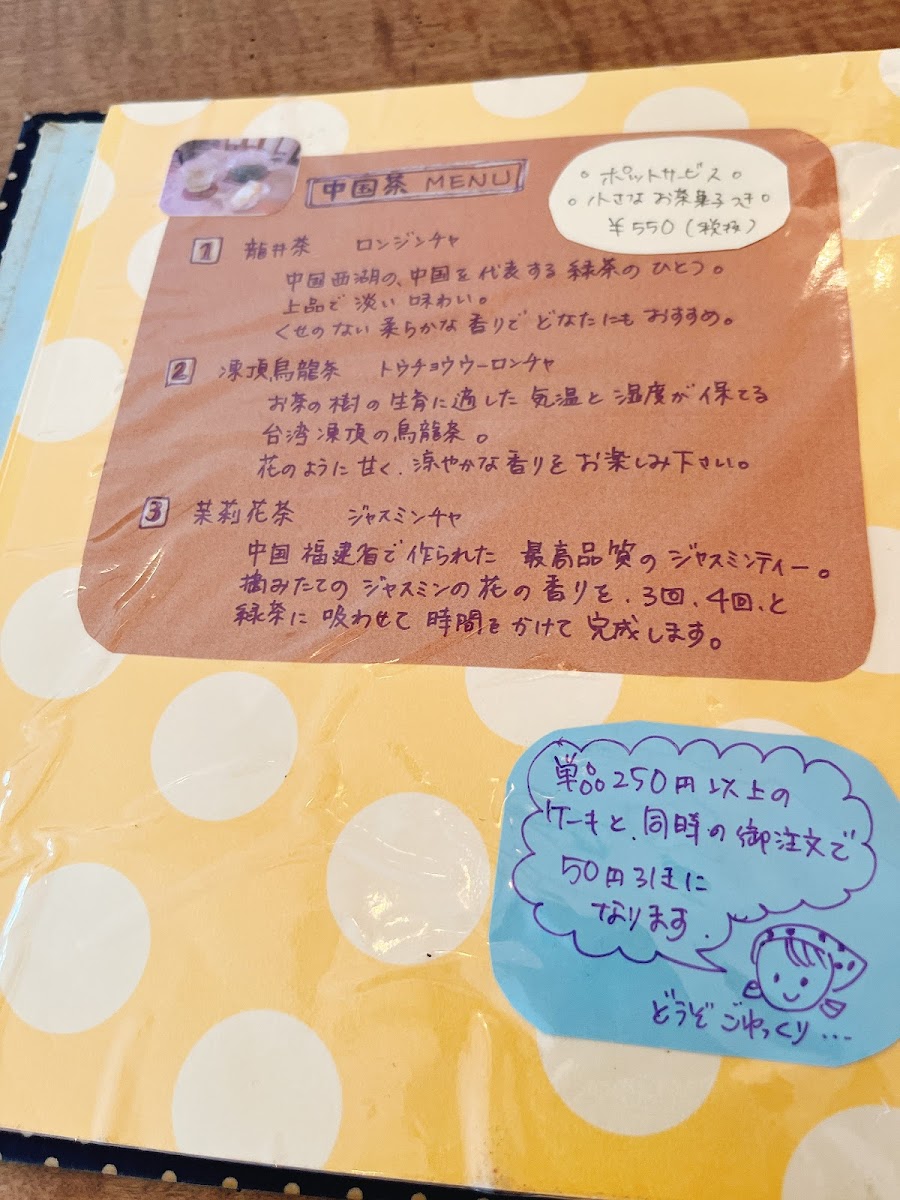 中国茶 MENU
。ポットサービス。
。小さな お茶菓子つき。
¥550(税抜)
1 龍井茶 ロンジンチャ
中国西湖の、中国を代表する緑茶のひとつ。
上品で淡い味わい。
くせのない柔らかな香りでどなたにもおすすめ。
2 凍頂烏龍茶 トウチョウウーロンチャ
お茶の樹の生育に適した気温と湿度が保てる
台湾凍頂の烏龍茶。
花のように甘く、涼やかな香りをお楽しみ下さい。
3 茉莉花茶 ジャスミンチャ
中国福建省で作られた 最高品質のジャスミンティー。
摘みたてのジャスミンの花の香りを、3回、4回、と
緑茶に吸わせて時間をかけて完成します。
単品250円以上の
ケーキと、同時の御注文で
50円引きに
なります.
どうぞごゆっくり...